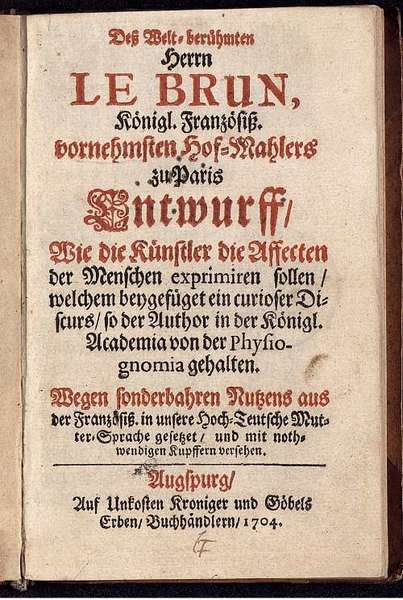 Deß Welt-berühmten
Herrn
LE BRUN,
Königl. Französiß.
vornehmsten Hof-Mahlers
zu Paris
Entwurff/
Wie die Künstler die Affecten
der Menschen exprimiren sollen/
welchem beygefüget ein curioser Di-
scurs/ so der Author in der Königl.
Academia von der Physio-
gnomia gehalten.
Wegen sonderbahren Nutzens aus
der Französiß. in unsere Hoch-Teutsche Mut-
ter-Sprache gesetzet/ und mit noth-
wendigen Kupffern versehen.
Augspurg/
Auf Unkosten Kroniger und Göbels
Erben/ Buchhändlern/ 1704.